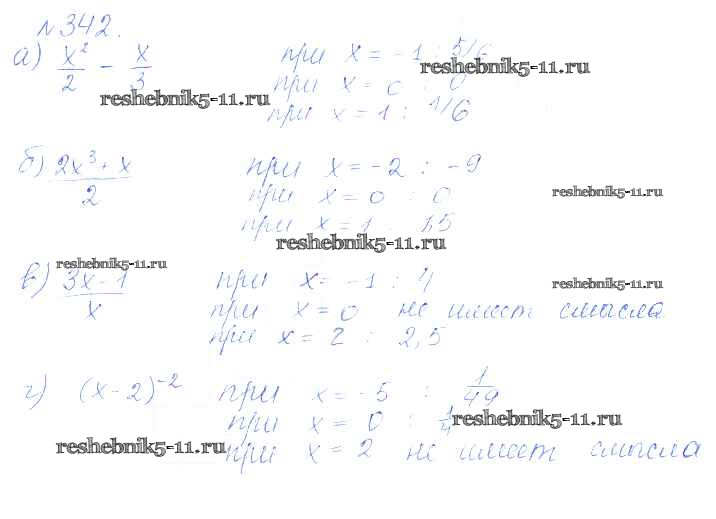 №342.
а) x²/2 - x/3 при x = -1 : 5/6
reshebnik5-11.ru
при x = 0 : 0
reshebnik5-11.ru
при x = 1 : 1/6
б) 2x³+x/2 при x = -2 : -9
при x = 0 : 0
reshebnik5-11.ru
при x = 1 1,5
reshebnik5-11.ru
reshebnik5-11.ru
в) 3x-1/x при x = -1 : 4
reshebnik5-11.ru
при x = 0 не имеет смысла
при x = 2 : 2,5
г) (x-2)⁻² при x = -5 : 1/49
при x = 0 : 1/4
reshebnik5-11.ru
reshebnik5-11.ru
при x = 2 не имеет смысла